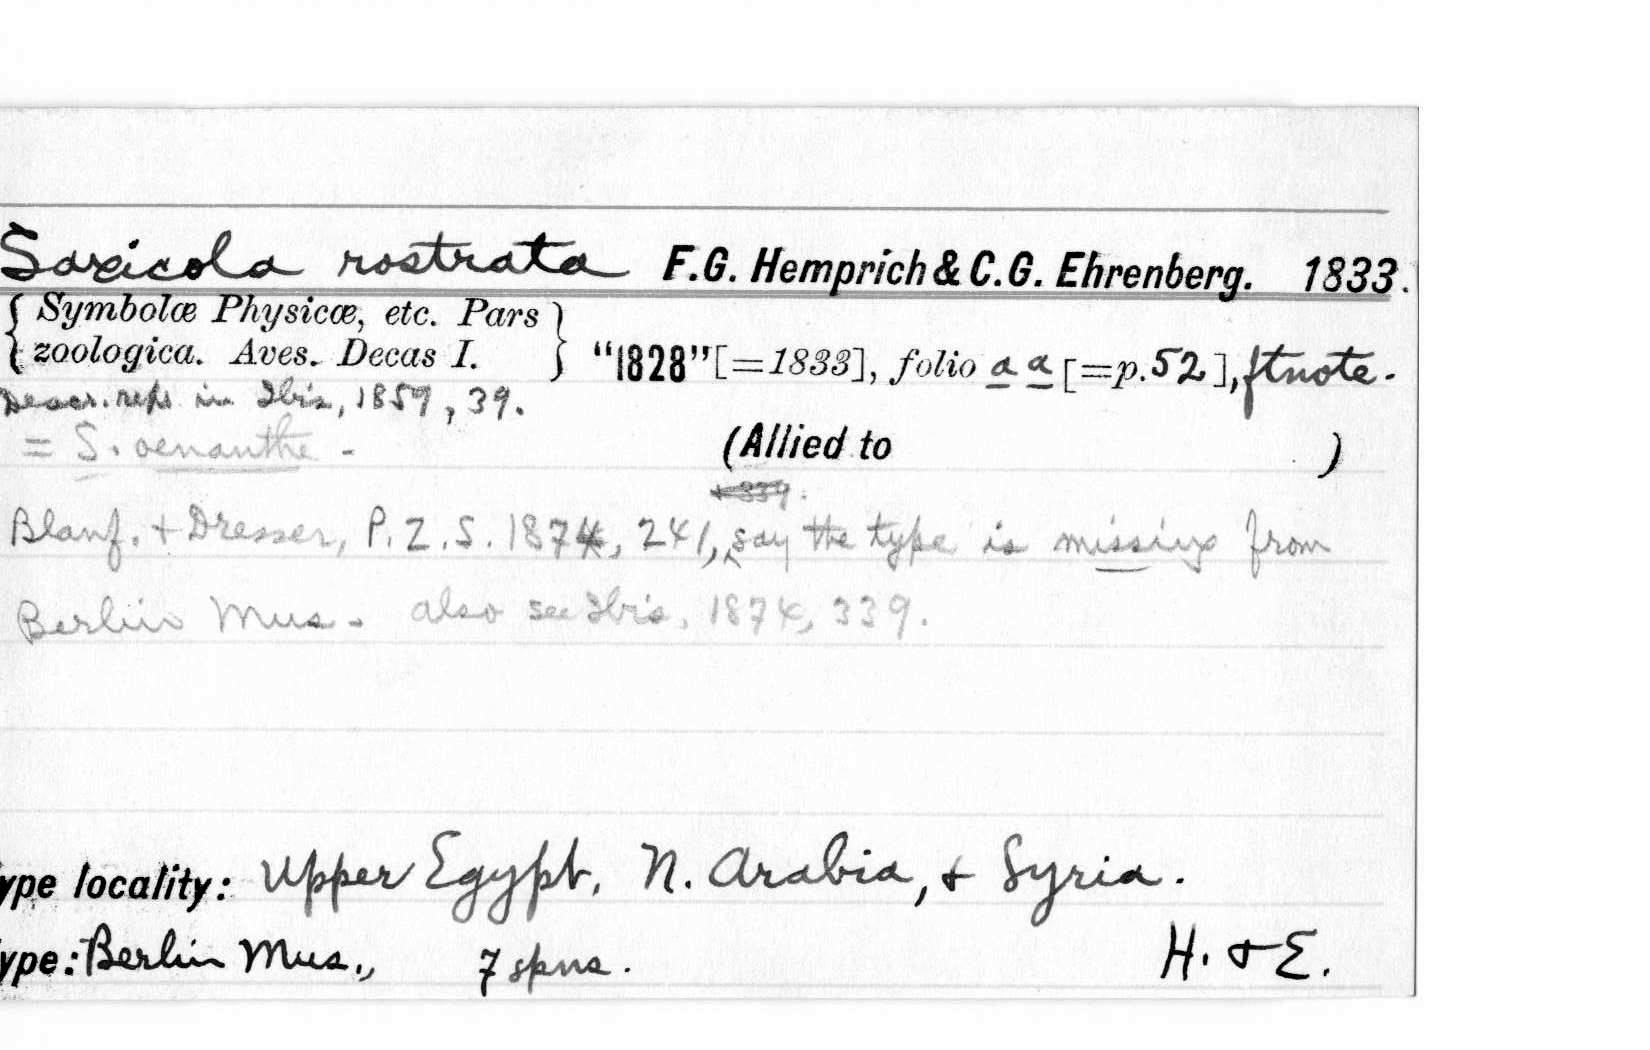 Saxicola rostrata F.G. Hemprich & C.G. Ehrenberg. 1833.
{ Symbolæ Physicæ, etc. Pars
zoologica. Aves. Decas I. } "1828" [=1833], folio a a [=p. 52], ftnote.
Descr. repr in Ibis, 1859, 39.
= S. oenanthe - (Allied to )
Blanf. + Dresser, P.Z.S. 1874, 241, say the type is missing from
Berlin Mus. also see Ibis, 1874, 339.
ype locality: Upper Egypt, N. Arabia, + Syria.
ype: Berlin Mus., 7 spns. H. + E.